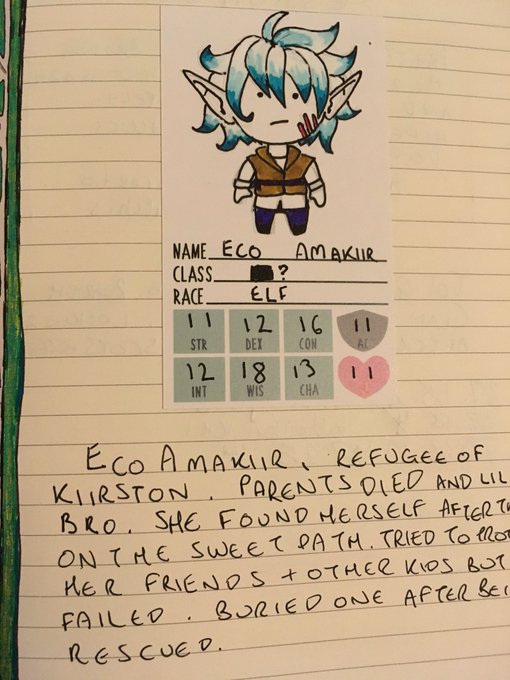 NAME ECO AMAKIIR
CLASS ?
RACE ELF
11 12 16 11
STR DEX CON AC
12 18 13 11
INT WIS CHA
ECO AMAKIIR, REFUGEE OF
KIIRSTON. PARENTS DIED AND LIL
BRO. SHE FOUND HERSELF AFTER
ON THE SWEET PATH. TRIED TO
HER FRIENDS + OTHER KIDS BUT
FAILED. BURIED ONE AFTER
RESCUED.